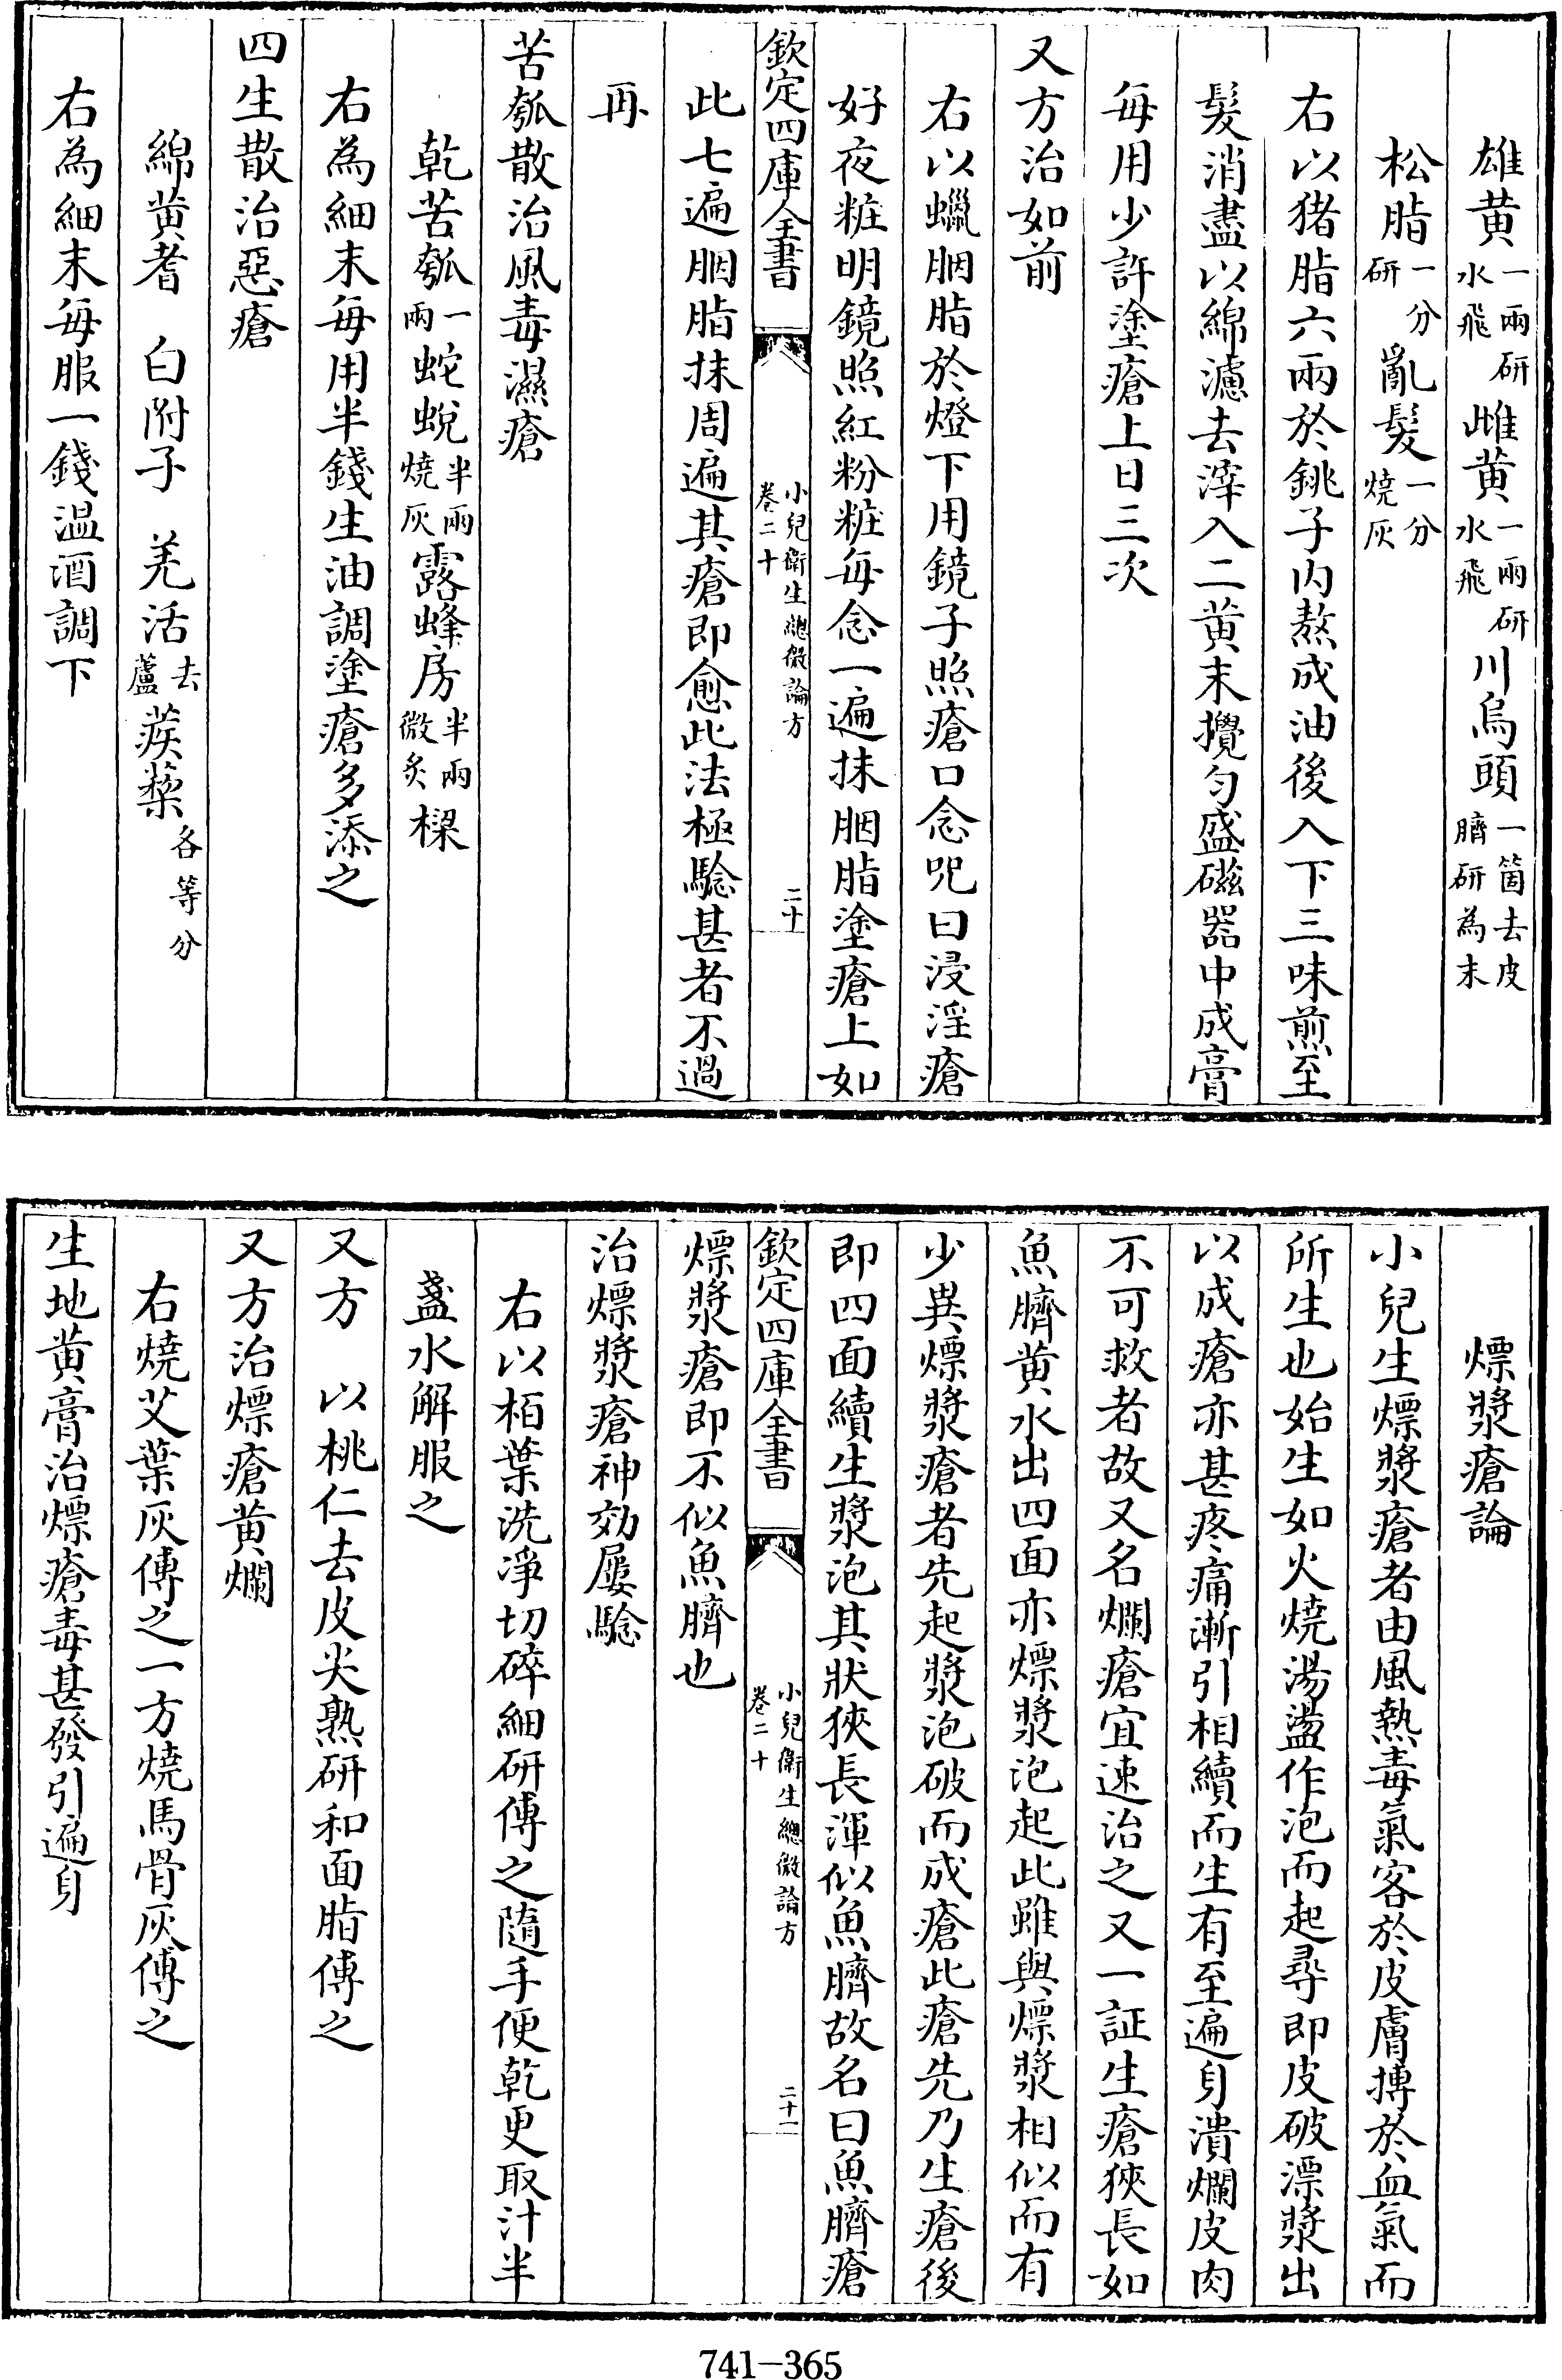 雄黄一兩研水飛雌黄一兩研水飛川烏頭一箇去皮臍研為末
松脂一分研亂髮一分燒灰
右以猪脂六兩於銚子内熬成油後入下三味煎至
髮消盡以綿濾去滓入二黄末攪勻盛磁器中成膏
毎用少許塗瘡上日三次
又方治如前
右以蠟胭脂於燈下用鏡子照瘡口念呪曰浸淫瘡
好夜粧明鏡照紅粉粧每念一遍抹胭脂塗瘡上如
欽定四庫全書 小兒衛生總微論方卷二十 二十
此七遍胭脂抹周遍其瘡即愈此法極驗甚者不過
再
苦瓠散治風毒濕瘡
乾苦瓠一兩蛇蛻半兩燒灰露蜂房半兩微炙樑
右為細末毎用半錢生油調塗瘡多添之
四生散治惡瘡
綿黄耆 白附子 羌活去蘆蒺藜各等分
右為細末每服一錢温酒調下
熛漿瘡論
小兒生熛漿瘡者由風熱毒氣客於皮膚搏於血氣而
所生也始生如火燒湯盪作泡而起尋即皮破漂漿出
以成瘡亦甚疼痛漸引相續而生有至遍身潰爛皮肉
不可救者故又名爛瘡宜速治之又一証生瘡狹長如
魚臍黄水出四面亦熛漿泡起此雖與熛漿相似而有
少異熛漿瘡者先起漿泡破而成瘡此瘡先乃生瘡後
即四面續生漿泡其狀狹長渾似魚臍故名曰魚臍瘡
欽定四庫全書 小兒衛生總微論方卷二十 二十一
熛漿瘡即不似魚臍也
治熛漿瘡神効屢驗
右以栢葉洗凈切碎細研傅之隨手便乾更取汁半
盞水解服之
又方 以桃仁去皮尖熟研和面脂傅之
又方治熛瘡黄爛
右燒艾葉灰傅之一方燒馬骨灰傅之
生地黄膏治熛瘡毒甚發引遍身
741-365